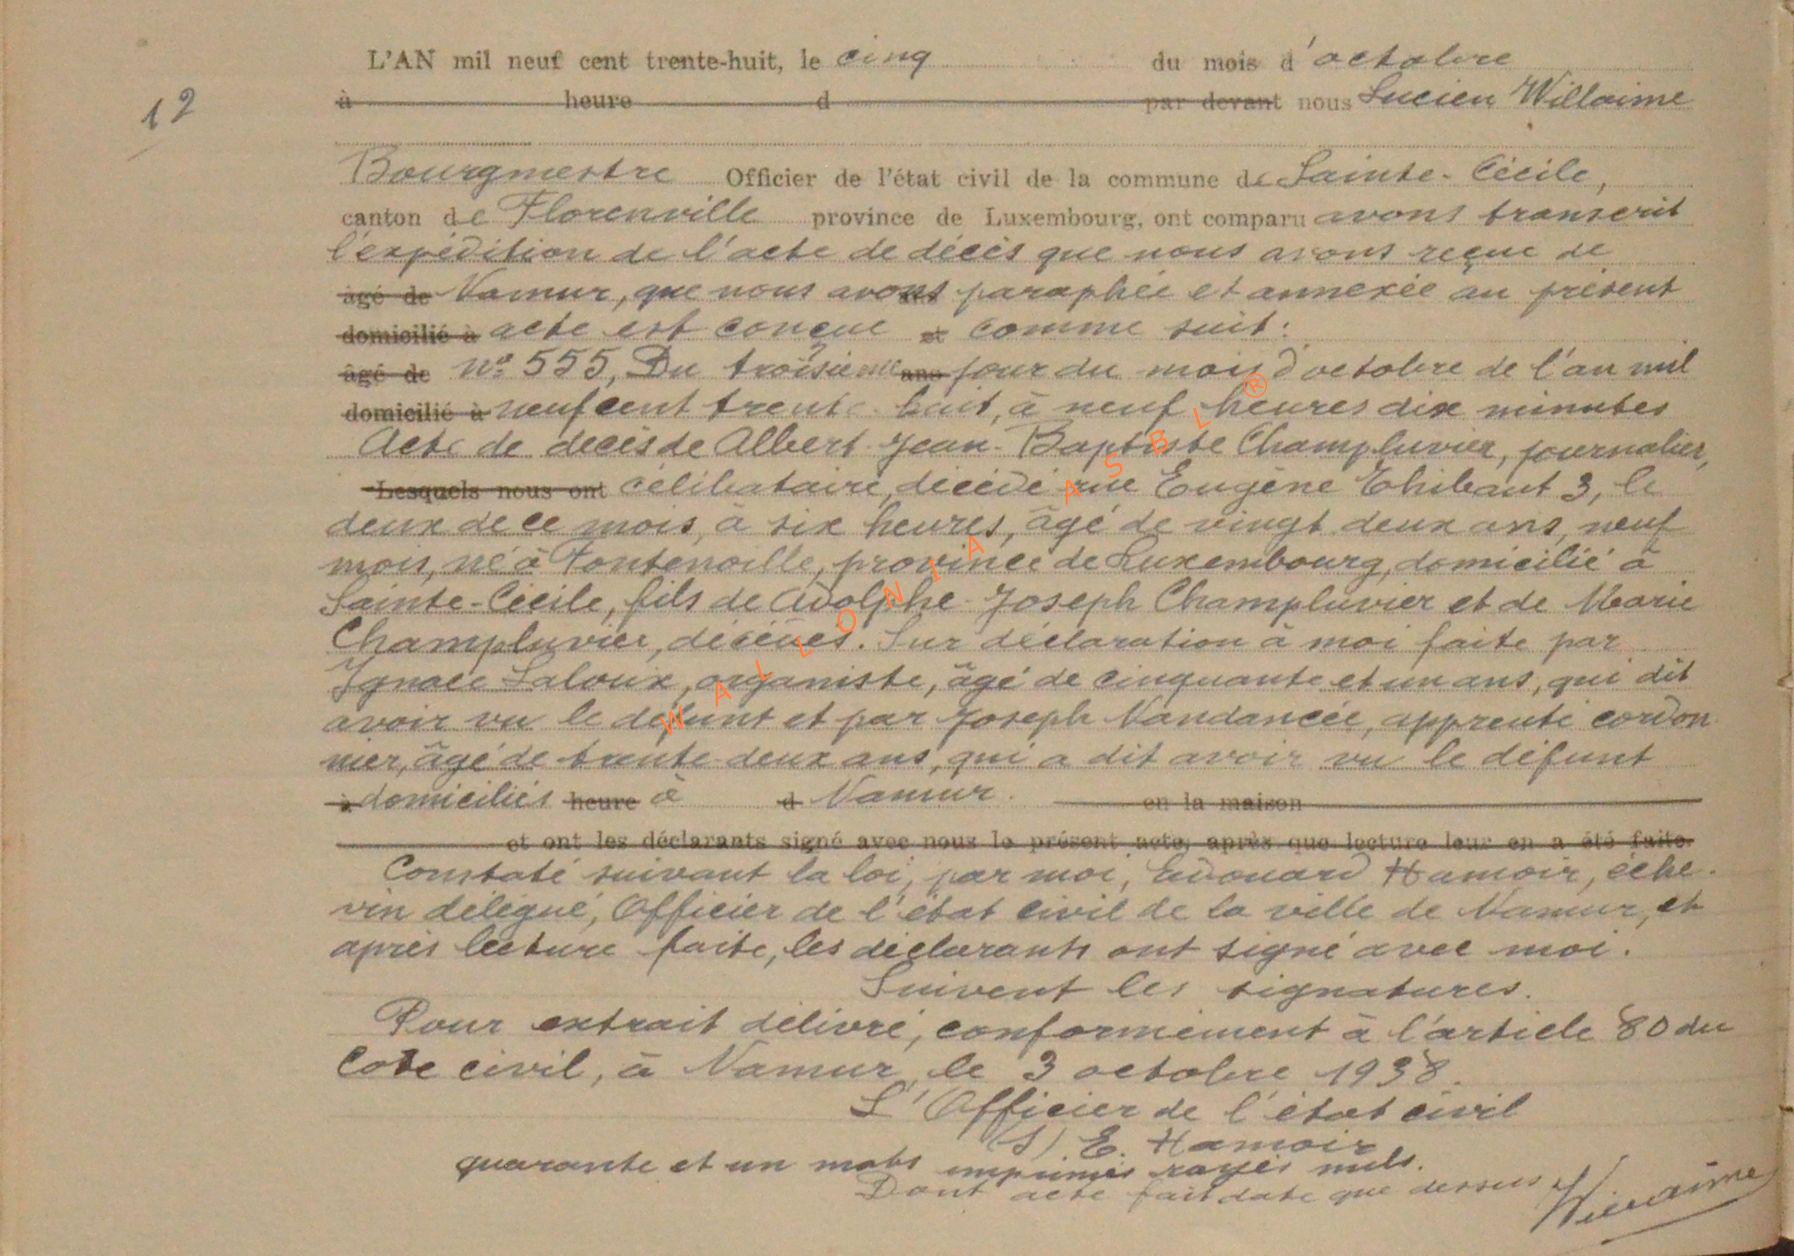 L'AN mil neuf cent trente-huit, le cinq du mois d'octobre
12
à heure d par devant nous Lucien Willaime
Bourgmestre Officier de l'état civil de la commune de Sainte-Cécile,
canton de Florenville province de Luxembourg, ont comparu avons transcrit
l'expédition de l'acte de décès que nous avons reçue de
âgé de Namur, que nous avons paraphée et annexée au présent
domicilié à acte est conçue et comme suit:
âgé de n° 555, Du troisième ans jour du mois d'octobre de l'an mil
domicilié à neuf cent trente-huit, à neuf heures dix minutes
Acte de décès de Albert-Jean-Baptiste Champluvier, journalier,
Lesquels nous ont célibataire, décédé rue Eugène Thibaut 3, le
deux de ce mois, à six heures, âgé de vingt-deux ans, neuf
mois, né à Fontenoille, province de Luxembourg, domicilié à
Sainte-Cécile, fils de Adolphe-Joseph Champluvier et de Marie
Champluvier, décédés. Sur déclaration à moi faite par
Ignace Laloux, organiste, âgé de cinquante et un ans, qui dit
avoir vu le défunt et par Joseph Vandancée, apprenti cordon-
nier, âgé de trente-deux ans, qui a dit avoir vu le défunt
à domiciliés heure à d Namur. en la maison
et ont les déclarants signé avec nous le présent acte, après que lecture leur en a été faite.
Constaté suivant la loi, par moi, Edouard Hamoir, éche-
vin délégué, Officier de l'état civil de la ville de Namur, et
après lecture faite, les déclarants ont signé avec moi.
Suivent les signatures.
Pour extrait délivré, conformément à l'article 80 du
Code civil, à Namur, le 3 octobre 1938.
L'Officier de l'état civil
(s) E. Hamoir
quarante et un mots imprimés rayés nuls.
Dont acte fait date que dessus
Willaime
WALLONIA ASBL ®